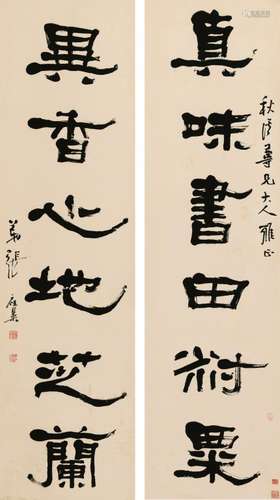 秋尊兄大人雅正
真味書田叔粟
異香心地芝蘭
弟張